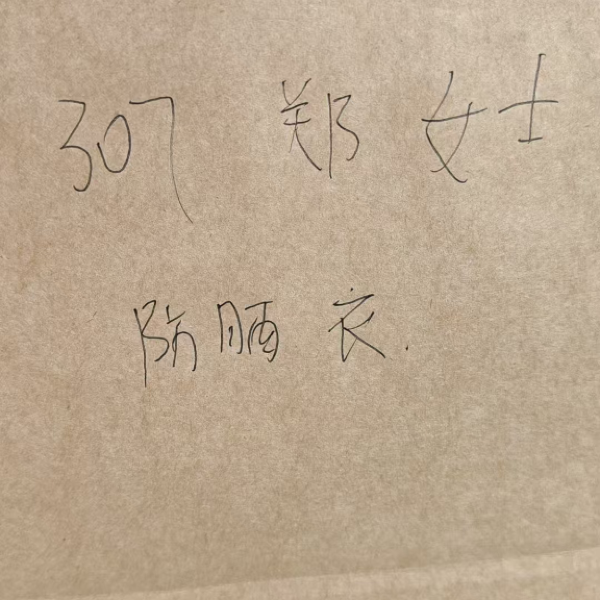 307 郑女士
防晒衣.